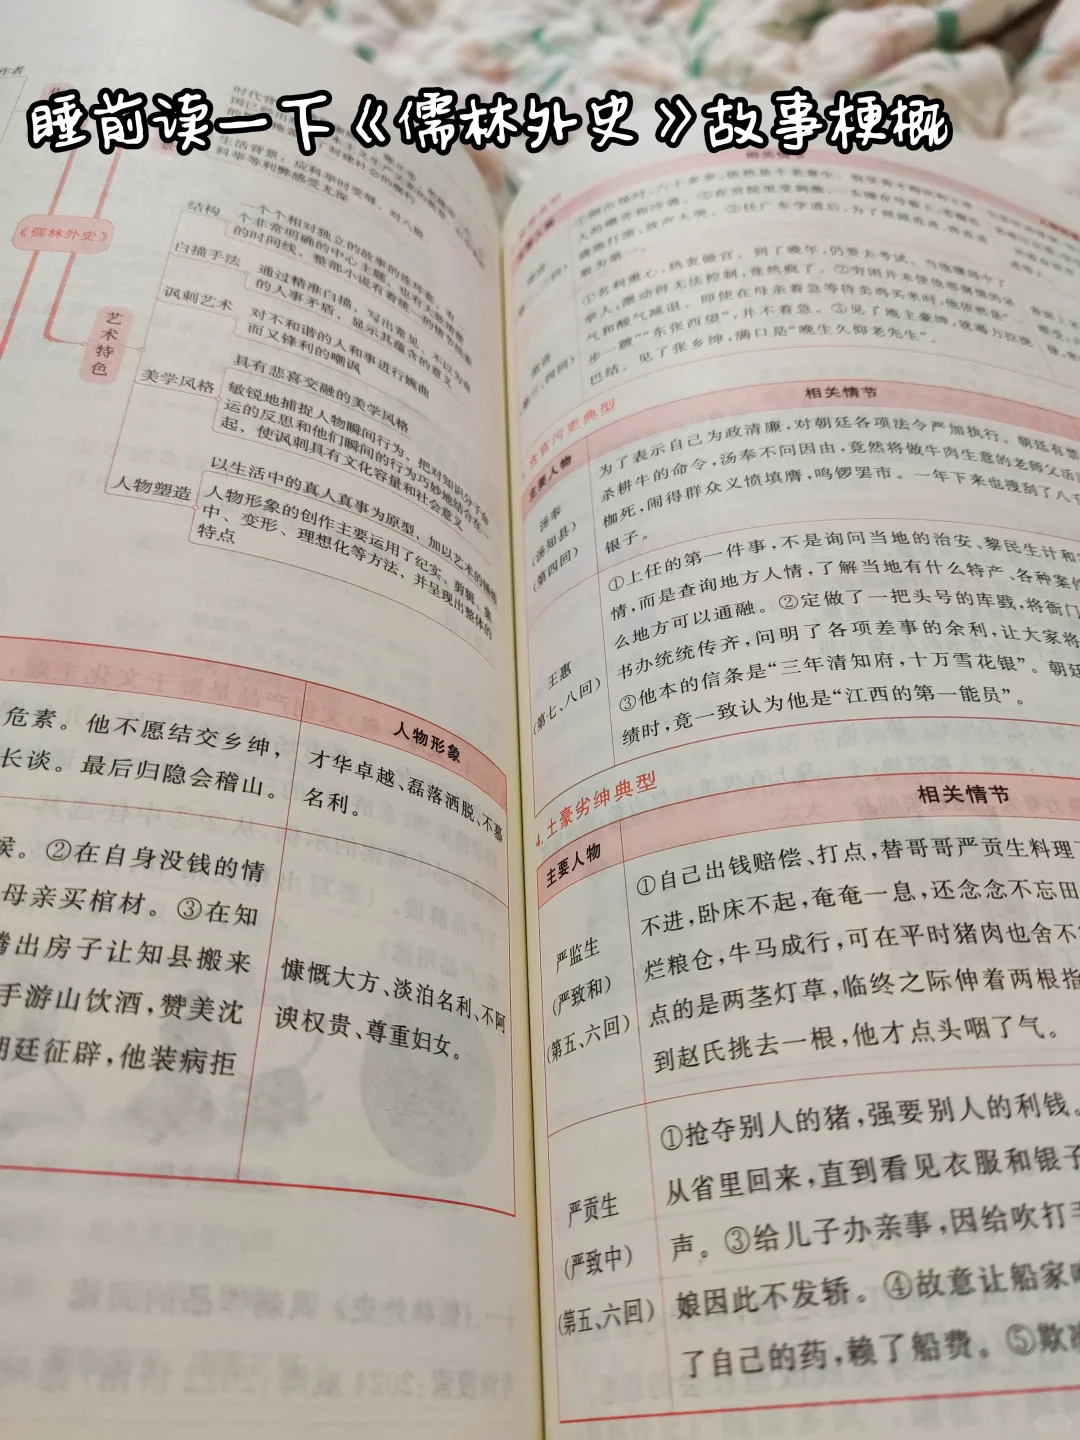 睡前读一下《儒林外史》故事梗概
作者
《儒林外史》
艺术特色
结构
一个个相对独立的故事的连环套,有一
个非常明确的中心主题,也有大致清楚
的时间线,整部小说有着统一的情节线索
白描手法
通过精准白描,写出常见、不以为奇
的人事矛盾,显示其蕴含的意义
讽刺艺术
对不和谐的人和事进行婉曲
而又锋利的嘲讽
美学风格
具有悲喜交融的美学风格
敏锐地捕捉人物瞬间行为,把对知识分子命
运的反思和他们瞬间的行为巧妙地结合在一
起,使讽刺具有文化容量和社会意义
人物塑造
以生活中的真人真事为原型,加以艺术的
人物形象的创作主要运用了纪实、剪辑、集
中、变形、理想化等方法,并呈现出整体的
特点
人物形象
危素。他不愿结交乡绅,
长谈。最后归隐会稽山。
才华卓越、磊落洒脱、不慕
名利。
侯。②在自身没钱的情
母亲买棺材。③在知
腾出房子让知县搬来
手游山饮酒,赞美沈
朝廷征辟,他装病拒
慷慨大方、淡泊名利、不阿
谀权贵、尊重妇女。
相关情节
①名利熏心,热衷做官。到了晚年,仍要去考试。当他
举人,激动得无法控制,竟然疯了。②穷困并未使他
气和酸气减退。即使在母亲着急等待卖鸡买米时,他依然是"
步一踱""东张西望",并不着急。③见了地主豪绅,
巴结。见了张乡绅,满口是"晚生久仰老先生"。
贪官污吏典型
主要人物
相关情节
汤奉
(汤知县)
(第四回)
为了表示自己为政清廉,对朝廷各项法令严加执行。朝廷有禁
杀耕牛的命令,汤奉不问因由,竟然将做牛肉生意的老师父活活
枷死,闹得群众义愤填膺,鸣锣罢市。一年下来也搜刮了八千
银子。
王惠
(第七、八回)
①上任的第一件事,不是询问当地的治安、黎民生计和
情,而是查询地方人情,了解当地有什么特产、各种案件
么地方可以通融。②定做了一把头号的库戥,将衙门
书办统统传齐,问明了各项差事的余利,让大家将
③他本的信条是"三年清知府,十万雪花银"。朝廷
绩时,竟一致认为他是"江西的第一能员"。
4.土豪劣绅典型
主要人物
相关情节
严监生
(严致和)
(第五、六回)
①自己出钱赔偿、打点,替哥哥严贡生料理
不进,卧床不起,奄奄一息,还念念不忘田
烂粮仓,牛马成行,可在平时猪肉也舍不
点的是两茎灯草,临终之际伸着两根指
到赵氏挑去一根,他才点头咽了气。
严贡生
(严致中)
(第五、六回)
①抢夺别人的猪,强要别人的利钱。
从省里回来,直到看见衣服和银子
声。③给儿子办亲事,因给吹打手
娘因此不发轿。④故意让船家
了自己的药,赖了船费。⑤欺